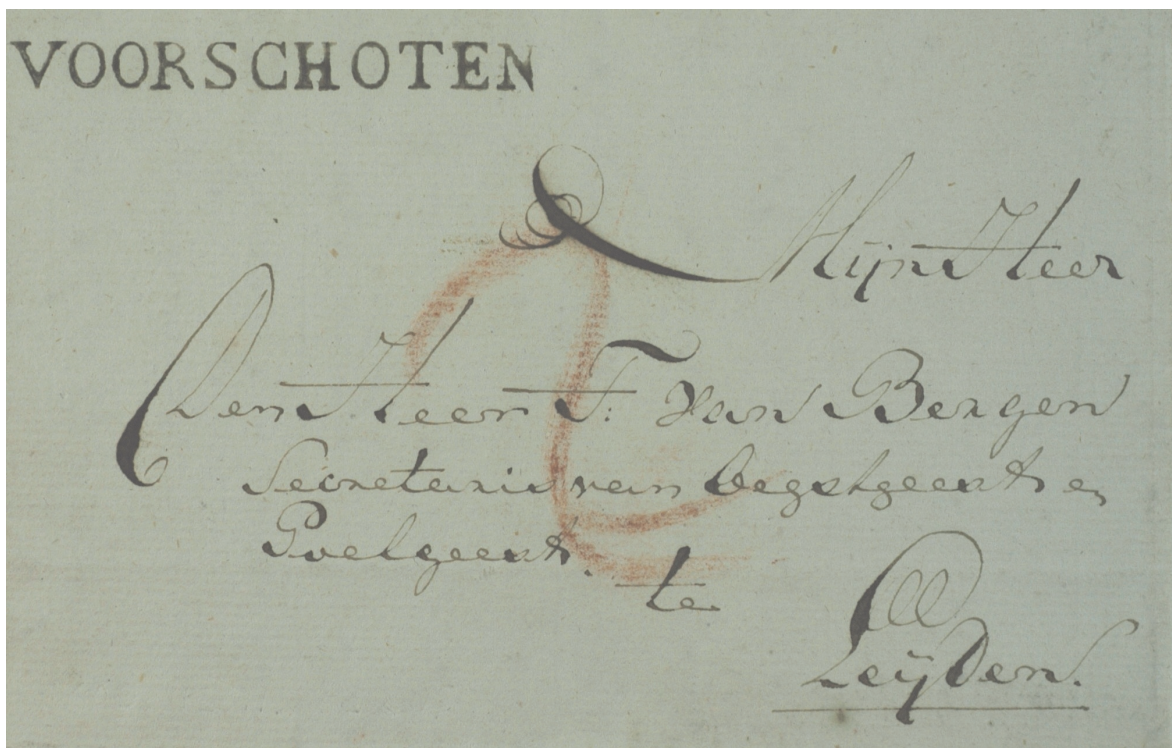 VOORSCHOTEN
Mijn Heer
Den Heer F: van Bergen
Secretaris van Oegstgeest en
Poelgeest.
te
Leÿden.